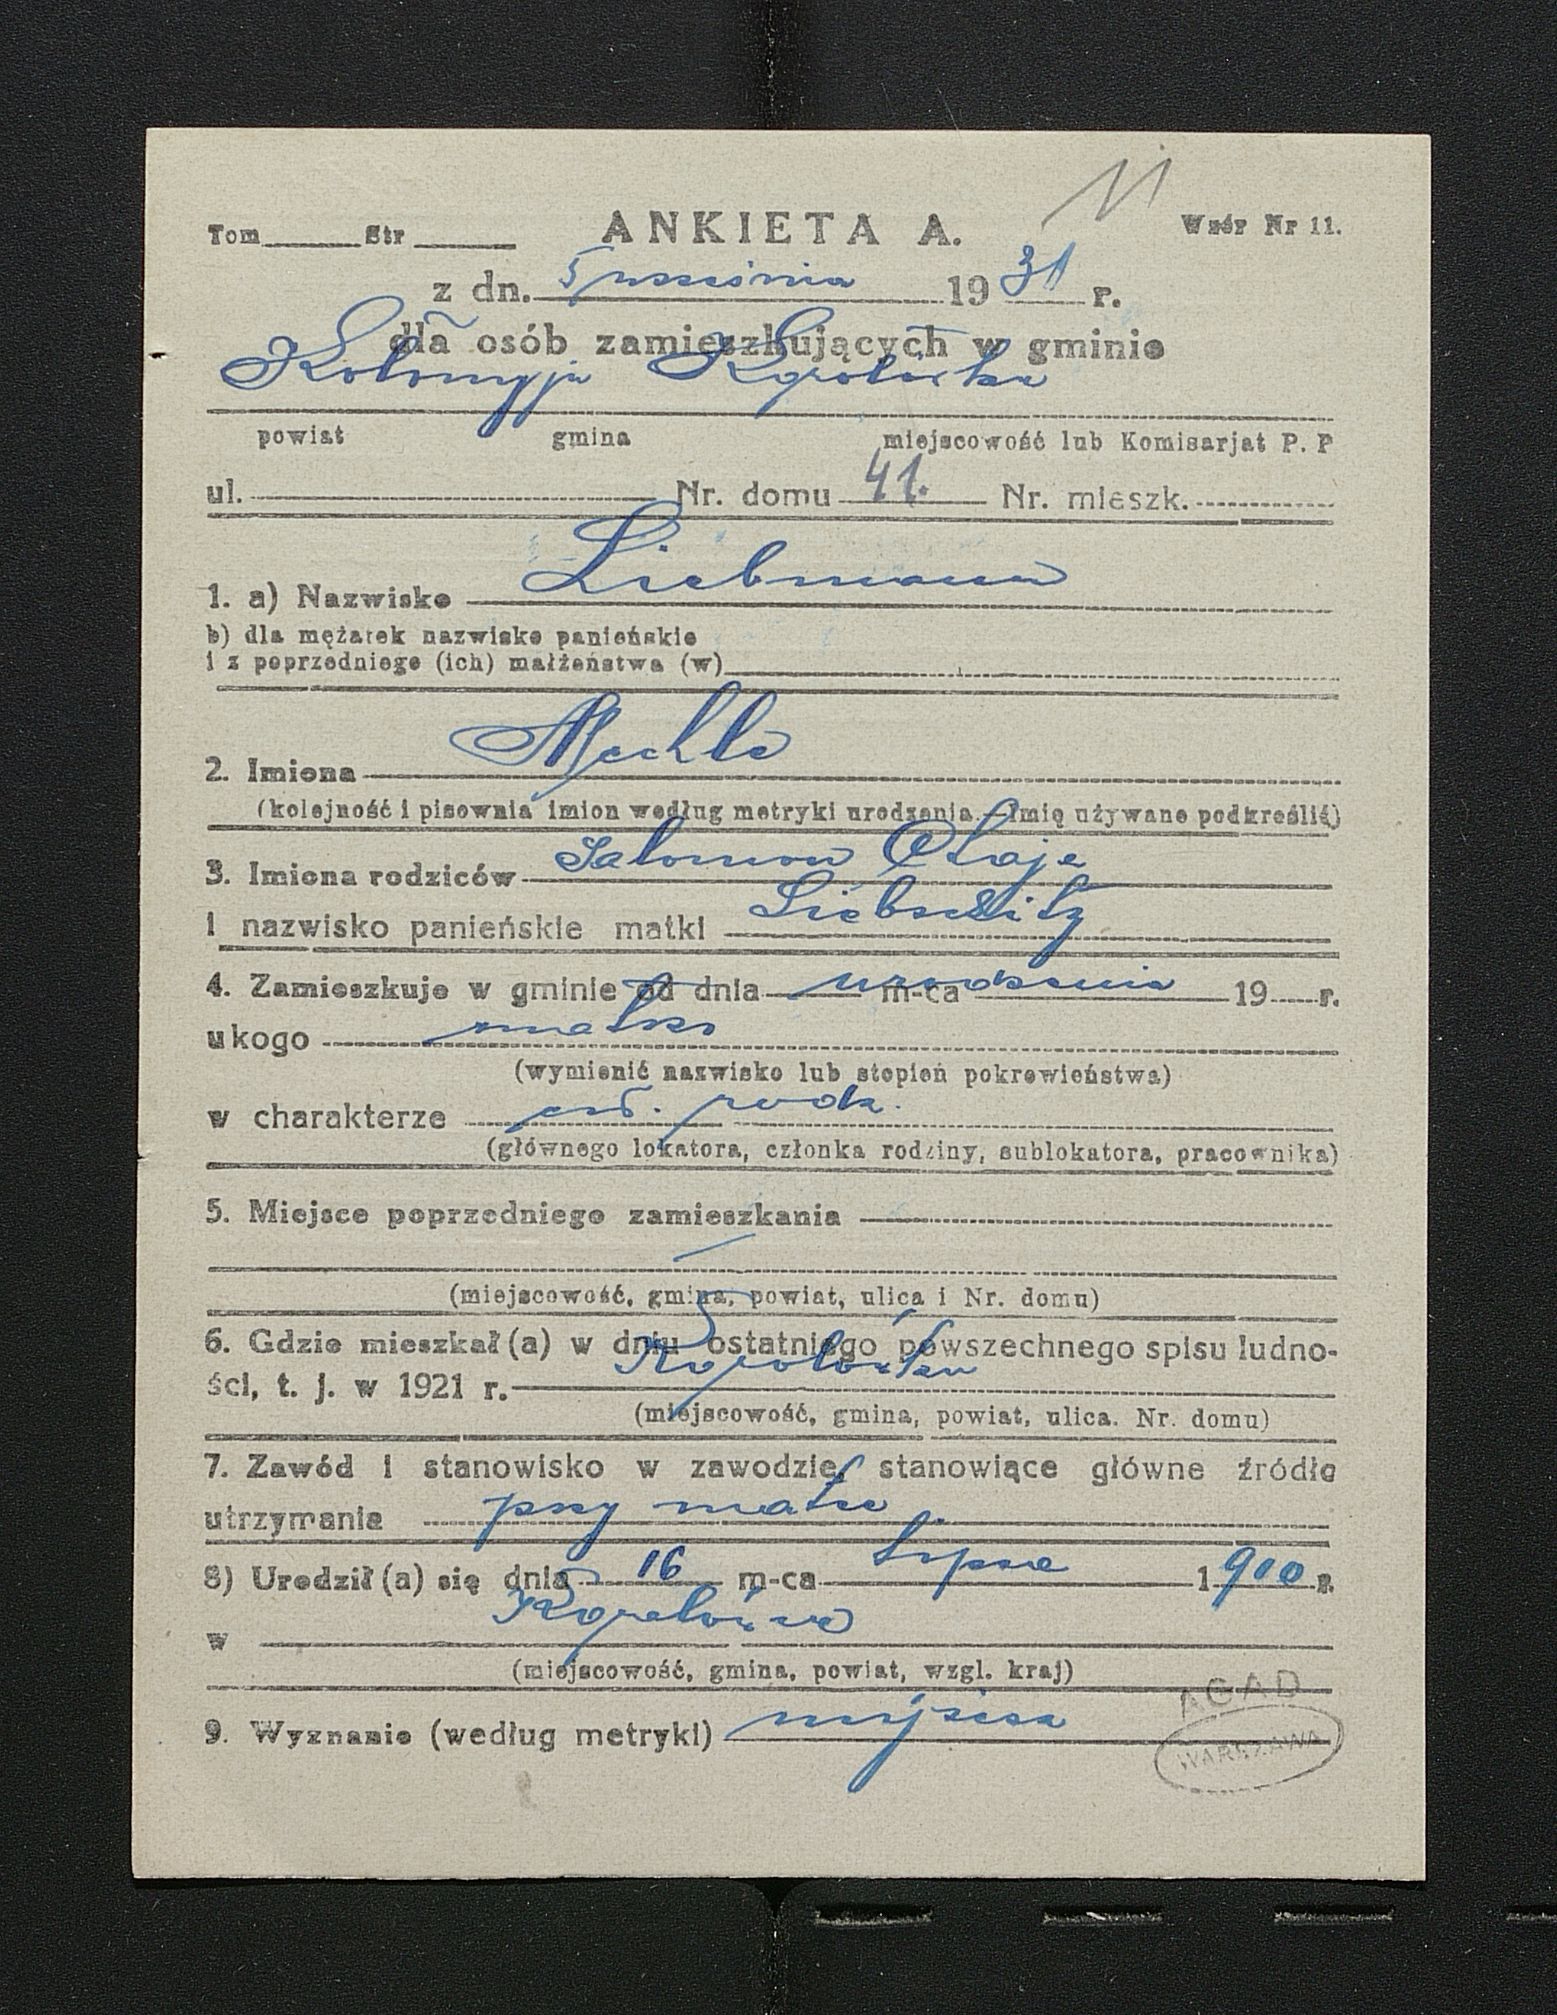 11
Tom Str ANKIETA A. Wzór Nr 11.
z dn. 5 września 1931 r.
dla osób zamieszkujących w gminie
Kołomyja Korolówka
powiat gmina miejscowość lub Komisarjat P. P
ul. Nr. domu 41. Nr. mieszk.
1. a) Nazwisko Liebmann
b) dla mężatek nazwisko panieńskie
i z poprzedniego (ich) małżeństwa (w)
2. Imiona Mechle
(kolejność i pisownia imion według metryki urodzenia. Imię używane podkreślić)
3. Imiona rodziców Salomon Chaje
i nazwisko panieńskie matki
4. Zamieszkuje w gminie od dnia urodzenia m-ca 19 r.
u kogo matki
(wymienić nazwisko lub stopień pokrewieństwa)
w charakterze czł. rodz.
(głównego lokatora, członka rodziny, sublokatora, pracownika)
5. Miejsce poprzedniego zamieszkania
(miejscowość, gmina, powiat, ulica i Nr. domu)
6. Gdzie mieszkał(a) w dniu ostatniego powszechnego spisu ludno-
ści, t. j. w 1921 r. Korolówka
(miejscowość, gmina, powiat, ulica. Nr. domu)
7. Zawód i stanowisko w zawodzie, stanowiące główne źródło
utrzymania przy matce
8) Urodził(a) się dnia 16 m-ca lipca 1900 r.
w Korolówce
(miejscowość, gmina, powiat, wzgl. kraj)
9. Wyznanie (według metryki) mojżesz
AGAD
WARSZAWA